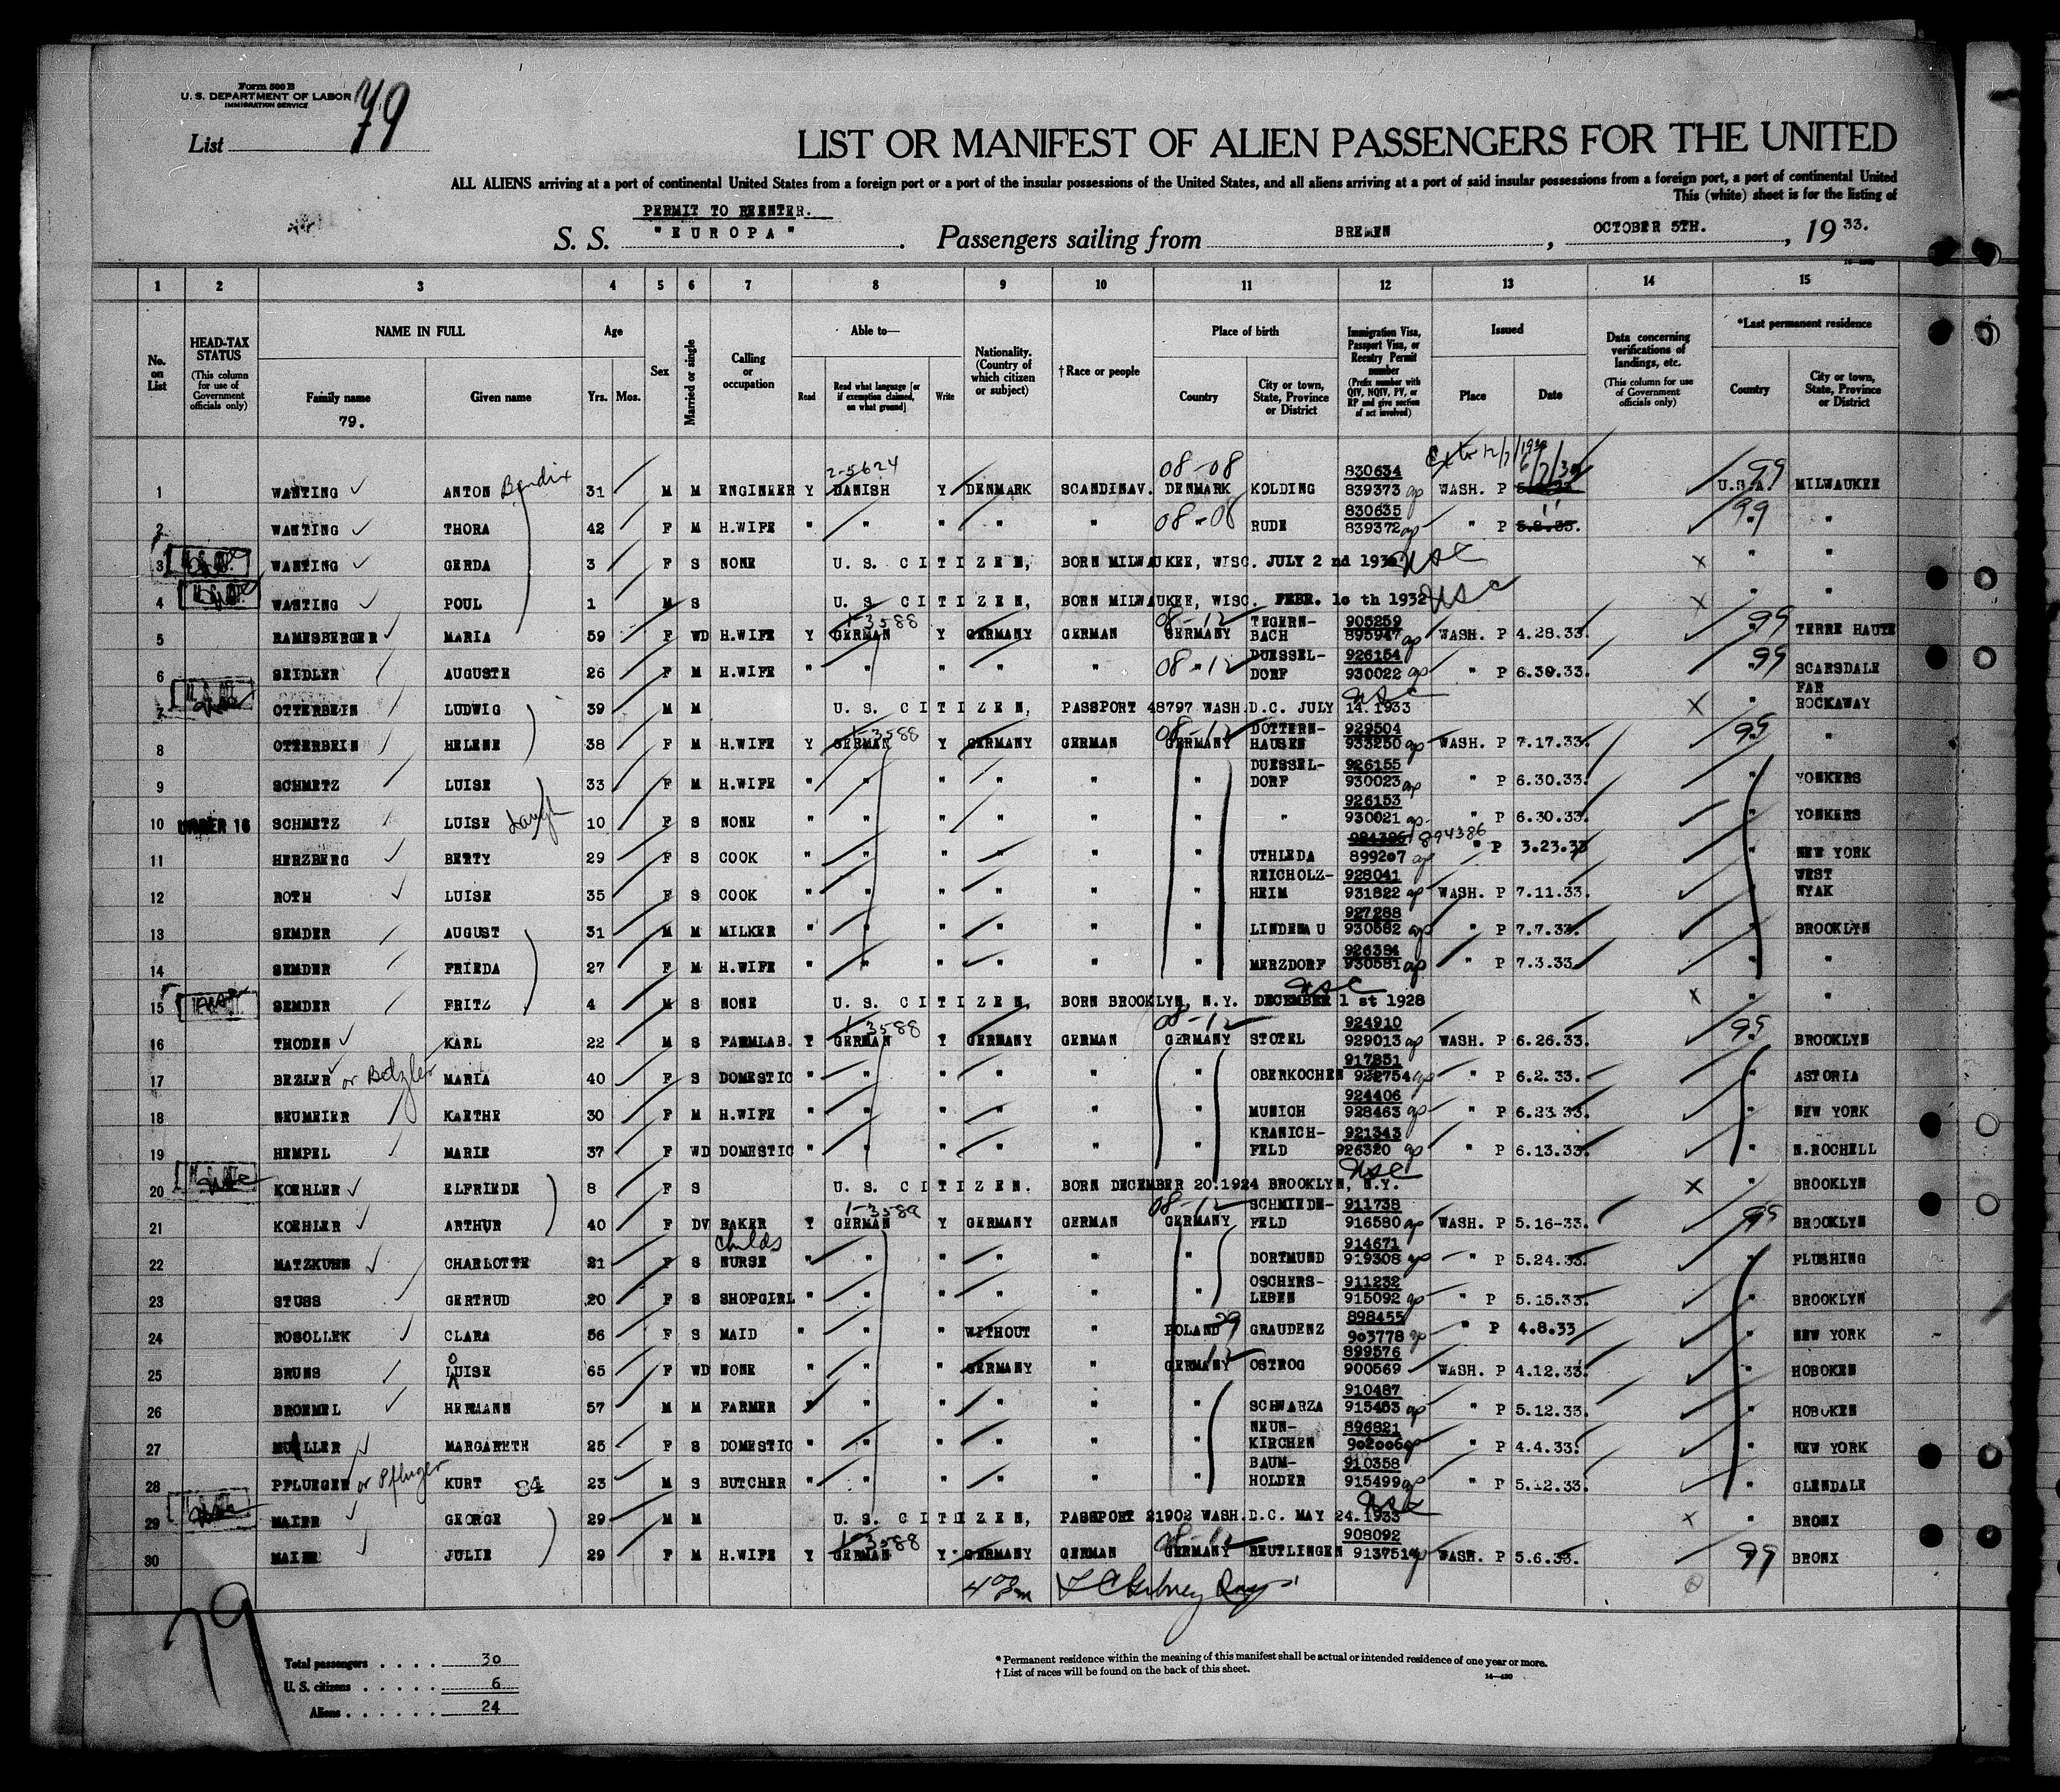 Form 500 B
U. S. DEPARTMENT OF LABOR
IMMIGRATION SERVICE
List 79
LIST OR MANIFEST OF ALIEN PASSENGERS FOR THE UNITED
ALL ALIENS arriving at a port of continental United States from a foreign port or a port of the insular possessions of the United States, and all aliens arriving at a port of said insular possessions from a foreign port, a port of continental United
This (white) sheet is for the listing of
PERMIT TO REENTER.
S. S. "EUROPA" . Passengers sailing from BREMEN , OCTOBER 5TH. , 19 33.
1 2 3 4 5 6 7 8 9 10 11 12 13 14 15
No. on List
HEAD-TAX STATUS (This column for use of Government officials only)
NAME IN FULL Family name 79. Given name
Age Yrs. Mos.
Sex
Married or single
Calling or occupation
Able to— Read Read what language [or if exemption claimed, on what ground] Write
Nationality. (Country of which citizen or subject)
† Race or people
Place of birth Country City or town, State, Province or District
Immigration Visa, Passport Visa, or Reentry Permit number (Prefix number with QIV, NQIV, PV, or RP and give section of act involved)
Issued Place Date
Data concerning verifications of landings, etc. (This column for use of Government officials only)
*Last permanent residence Country City or town, State, Province or District
2-5624 08-08 830634 99
1 WANTING ANTON Bendix 31 M M ENGINEER Y DANISH Y DENMARK SCANDINAV. DENMARK KOLDING 839373 WASH. P U.S.A. MILWAUKEE
08-08 830635 99
2 WANTING THORA 42 F M H.WIFE " " " " " " RUDE 839372 " P 5.2.33. " "
3 WANTING GERDA 3 F S NONE U. S. CITIZEN, BORN MILWAUKEE, WISC. JULY 2 nd 1930 USC x " "
4 WANTING POUL 1 M S U. S. CITIZEN, BORN MILWAUKEE, WISC. FEBR. 10 th 1932 USC x " "
1-3588 08-12 TEGERN- 905259 99
5 RAMESBERGER MARIA 59 F WD H.WIFE Y GERMAN Y GERMANY GERMAN GERMANY BACH 895947 WASH. P 4.28.33. " TERRE HAUTE
08-12 DUESSEL- 926154 99
6 SEIDLER AUGUSTE 26 F M H.WIFE " " " " " " DORF 930022 " P 6.30.33. " SCARSDALE
USC FAR
7 OTTERBEIN LUDWIG 39 M M U. S. CITIZEN, PASSPORT 48797 WASH.D.C. JULY 14.1933 X " ROCKAWAY
1-3588 08-12 DOTTERN- 929504 99
8 OTTERBEIN HELENE 38 F M H.WIFE Y GERMAN Y GERMANY GERMAN GERMANY HAUSEN 933250 WASH. P 7.17.33. "
DUESSEL- 926155
9 SCHMETZ LUISE 33 F M H.WIFE " " " " " " DORF 930023 " P 6.30.33. " YONKERS
926153
10 UNDER 16 SCHMETZ LUISE daugh 10 F S NONE " " " " " " " 930021 " P 6.30.33. " YONKERS
894386
11 HERZBERG BETTY 29 F S COOK " " " " " " UTHLEDA 899207 " P 3.23.33 " NEW YORK
REICHOLZ- 928041 WEST
12 ROTH LUISE 35 F S COOK " " " " " " HEIM 931822 WASH. P 7.11.33. " NYAK
927288
13 SEMDER AUGUST 31 M M MILKER " " " " " " LINDENAU 930582 " P 7.7.33. " BROOKLYN
926384
14 SEMDER FRIEDA 27 F M H.WIFE " " " " " " MERZDORF 930581 " P 7.3.33. " "
USC
15 SEMDER FRITZ 4 M S NONE U. S. CITIZEN, BORN BROOKLYN, N.Y. DECEMBER 1 st 1928 x " "
1-3588 08-12 924910 99
16 THODEN KARL 22 M S FARMLAB. Y GERMAN Y GERMANY GERMAN GERMANY STOTEL 929013 WASH. P 6.26.33. " BROOKLYN
917851
17 BEZLER or Betzler MARIA 40 F S DOMESTIC " " " " " " OBERKOCHEN 922754 " P 6.2.33. " ASTORIA
924406
18 NEUMEIER KAETHE 30 F M H.WIFE " " " " " " MUNICH 928463 " P 6.23.33. " NEW YORK
KRANICH- 921343
19 HEMPEL MARIE 37 F WD DOMESTIC " " " " " " FELD 926320 " P 6.13.33. " N.ROCHELL
USC
20 KOEHLER ELFRIEDE 8 F S U. S. CITIZEN. BORN DECEMBER 20.1924 BROOKLYN, N.Y. X " BROOKLYN
1-3589 08-12 SCHMIEDE- 911738 99
21 KOEHLER ARTHUR 40 F DV BAKER Y GERMAN Y GERMANY GERMAN GERMANY FELD 916580 WASH. P 5.16-33. BROOKLYN
childs 914671
22 MATZKUHN CHARLOTTE 21 F S NURSE " " " " " " DORTMUND 919308 " P 5.24.33. " FLUSHING
OSCHERS- 911232
23 STUSS GERTRUD 20 F S SHOPGIRL " " " " " " LEBEN 915092 " P 5.15.33. " BROOKLYN
29 898455
24 ROSOLLEK CLARA 56 F S MAID " " " WITHOUT " POLAND GRAUDENZ 903778 " P 4.8.33 " NEW YORK
12 899576
25 BRUNS LOUISE 65 F WD NONE " " " GERMANY " GERMANY OSTROG 900569 WASH. P 4.12.33. " HOBOKEN
910487
26 BROEMEL HERMANN 57 M M FARMER " " " " " " SCHWARZA 915453 " P 5.12.33. " HOBOKEN
NEUN- 896821
27 MUELLER MARGARETH 25 F S DOMESTIC " " " " " " KIRCHEN 902006 " P 4.4.33. " NEW YORK
BAUM- 910358
28 PFLUEGER or Pfluger KURT 84 23 M S BUTCHER " " " " " " HOLDER 915499 " P 5.12.33. " GLENDALE
USC
29 MAIER GEORGE 29 M M U. S. CITIZEN, PASSPORT 21902 WASH.D.C. MAY 24.1933 x " BRONX
1-3588 08-12 908092
30 MAIER JULIE 29 F M H.WIFE Y GERMAN Y GERMANY GERMAN GERMANY REUTLINGEN 913751 WASH. P 5.6.33. 99 BRONX
79
Total passengers . . . . 30
U. S. citizens . . . . . 6
Aliens . . . . . . 24
* Permanent residence within the meaning of this manifest shall be actual or intended residence of one year or more.
† List of races will be found on the back of this sheet.
14—430